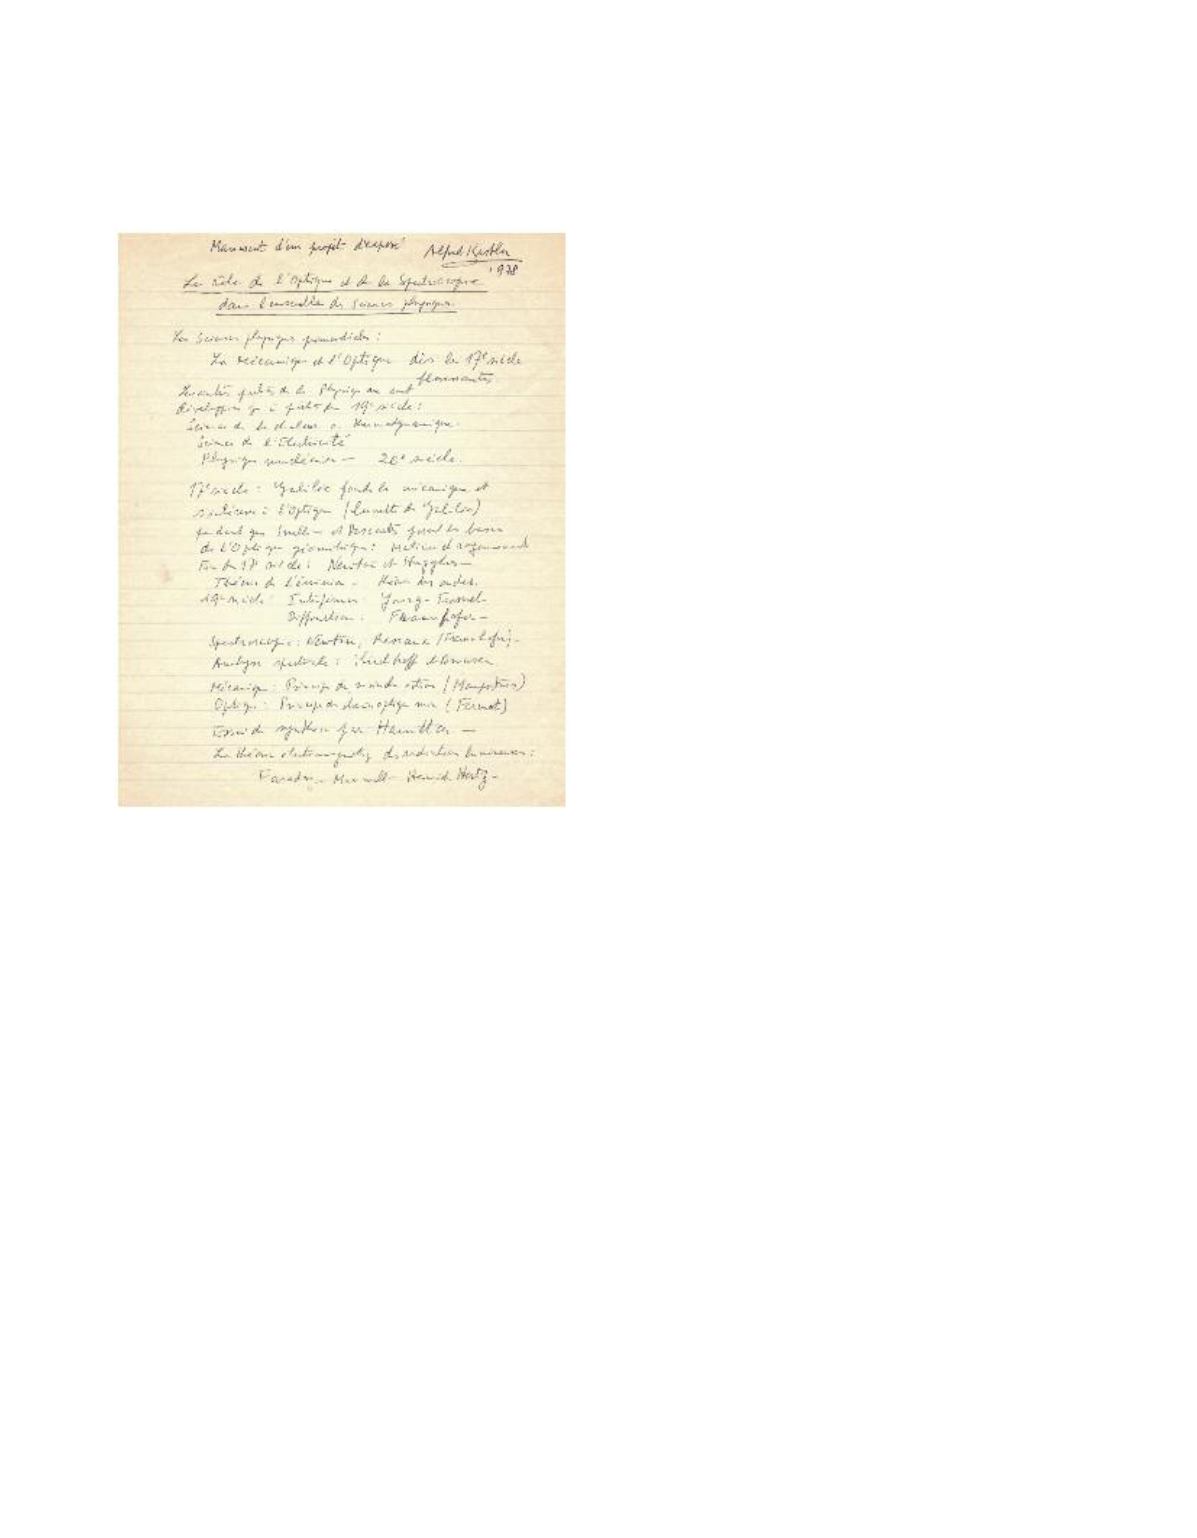 Manuscrit d'un projet d'exposé
Alfred Kastler
1978
Le rôle de l'Optique et de la Spectroscopie
dans l'ensemble des Sciences physiques.
Les Sciences physiques primordiales :
La Mécanique et l'Optique dès le 17e siècle
florissantes
parties de la Physique ne sont
développées qu'à partir du 19e siècle :
Science de la chaleur Thermodynamique.
Science de l'Electricité
Physique nucléaire — 20e siècle.
17e siècle : Galilée fonde la mécanique et
s'intéresse à l'Optique (lunette de Galilée)
pendant que Snell et Descartes posent les bases
de l'Optique géométrique : Notion de rayonnement
Fin du 17e siècle : Newton et Huyghens —
Théorie de l'émission — théorie des ondes.
19e siècle : Interférences : Young - Fresnel
Diffraction : Fraunhofer —
Spectroscopie : Newton, (Fraunhofer) -
Analyse spectrale : Kirchhoff et Bunsen
Mécanique : Principe de moindre action (Maupertuis)
Optique : Principe du chemin optique min (Fermat)
Essai de synthèse par Hamilton —
La théorie électromagnétique des radiations lumineuses :
Faraday - Maxwell - Heinrich Hertz -